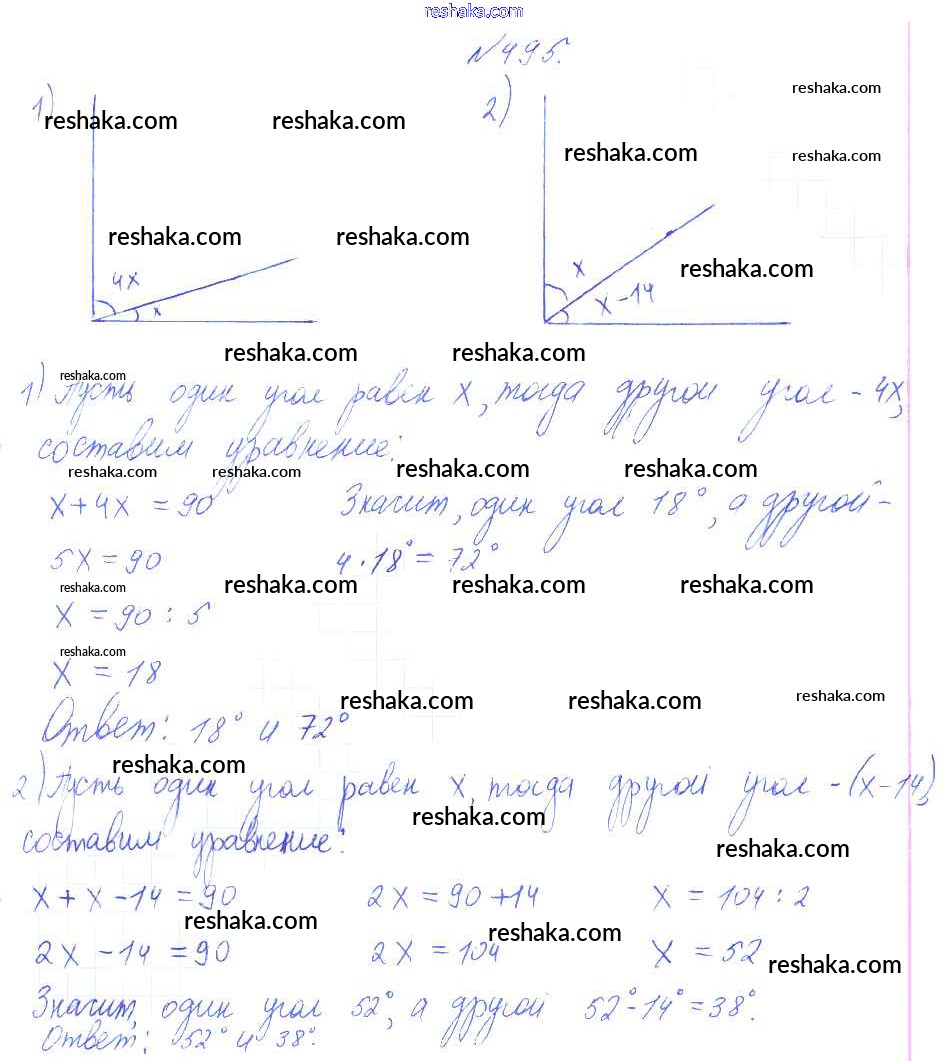 reshaka.com
N 495.
1) 2)
reshaka.com
reshaka.com reshaka.com
reshaka.com reshaka.com
reshaka.com reshaka.com
reshaka.com
4x x
x x-14
reshaka.com reshaka.com
reshaka.com
1) Пусть один угол равен x, тогда другой угол - 4x,
составим уравнение:
reshaka.com reshaka.com reshaka.com reshaka.com
x+4x = 90 Значит, один угол 18°, а другой-
5x = 90 4·18° = 72°
reshaka.com reshaka.com reshaka.com reshaka.com
x = 90 : 5
reshaka.com
x = 18
reshaka.com reshaka.com reshaka.com
Ответ: 18° и 72°
reshaka.com
2) Пусть один угол равен x, тогда другой угол -(x-14),
reshaka.com
составим уравнение:
reshaka.com
x + x - 14 = 90 2x = 90 + 14 x = 104 : 2
reshaka.com reshaka.com
2x - 14 = 90 2x = 104 x = 52
reshaka.com
Значит, один угол 52°, а другой 52°-14°=38°.
Ответ: 52° и 38°.